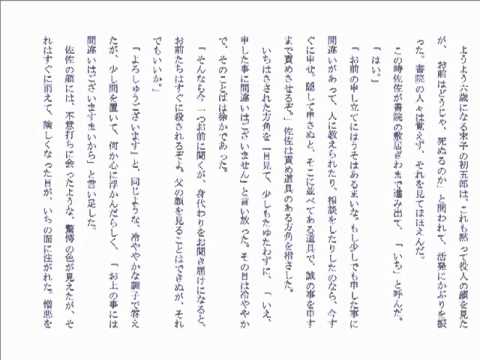 ようよう六歳になる末子の初五郎は、これも黙って役人の顔を見た
が、「お前はどうじゃ、死ぬるのか」と問われて、活発にかぶりを振
った。書院の人々は覚えず、それを見てほほえんだ。
この時佐佐が書院の敷居ぎわまで進み出て、「いち」と呼んだ。
「はい。」
「お前の申し立てにはうそはあるまいな。もし少しでも申した事に
間違いがあって、人に教えられたり、相談をしたりしたのなら、今す
ぐに申せ。隠して申さぬと、そこに並べてある道具で、誠の事を申す
まで責めさせるぞ。」佐佐は責め道具のある方角を指さした。
いちはさされた方角を一目見て、少しもたゆたわずに、「いえ、
申した事に間違いはございません」と言い放った。その目は冷ややか
で、そのことばは徐かであった。
「そんなら今一つお前に聞くが、身代わりをお聞き届けになると、
お前たちはすぐに殺されるぞよ。父の顔を見ることはできぬが、それ
でもいいか。」
「よろしゅうございます」と、同じような、冷ややかな調子で答え
たが、少し間を置いて、何か心に浮かんだらしく、「お上の事には
間違いはございますまいから」と言い足した。
佐佐の顔には、不意打ちに会ったような、驚愕の色が見えたが、そ
れはすぐに消えて、険しくなった目が、いちの面に注がれた。憎悪を